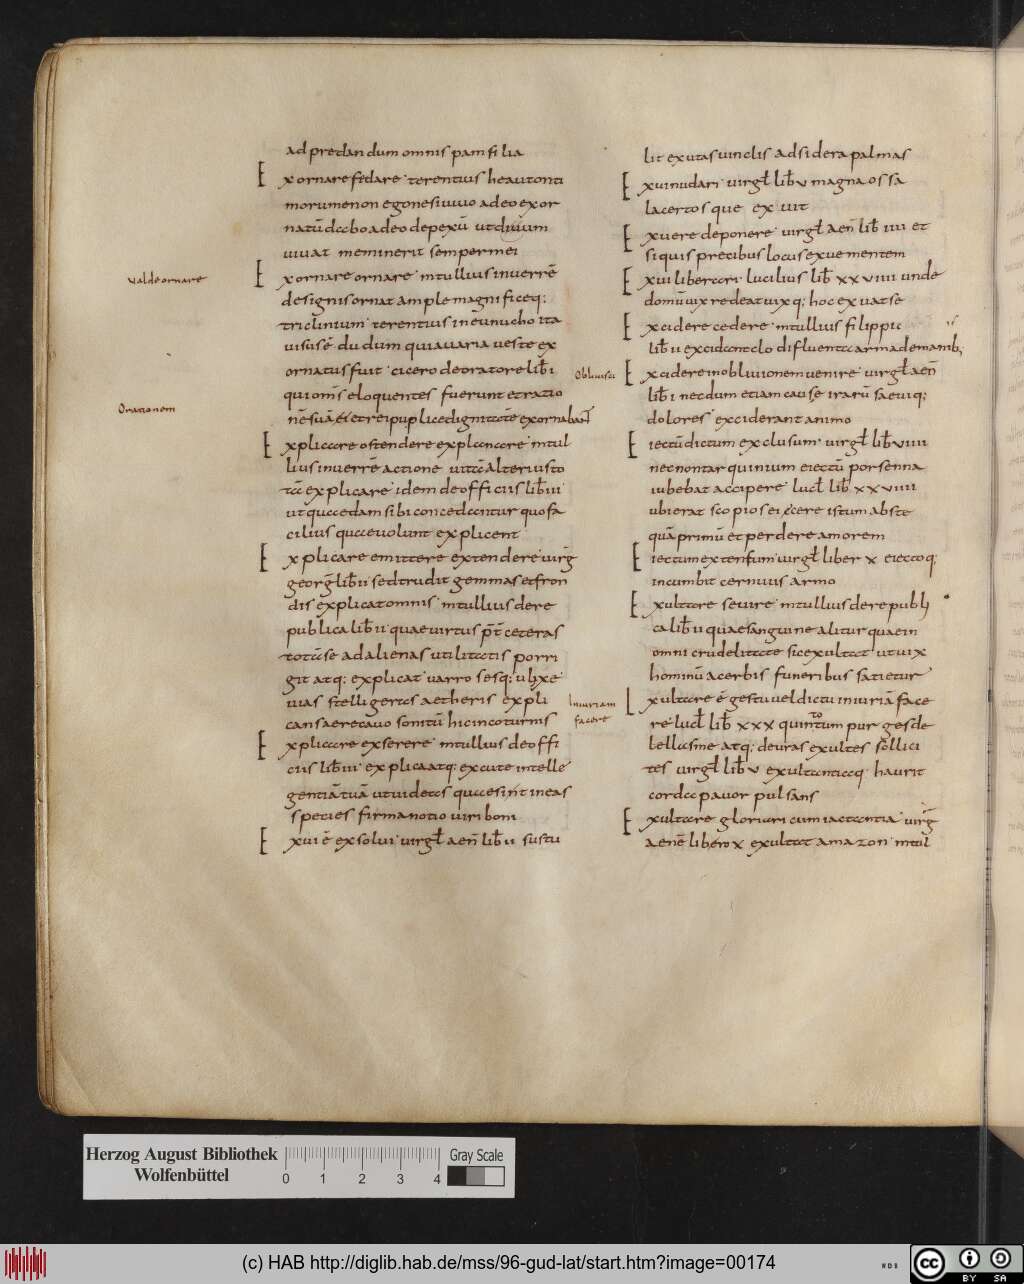 ad predandum omnis pamfilia
Exornare fedare· terentius heautonti
morumenon egone si uiuo adeo exor
natū dabo adeo depexū ut dum
uiuat meminerit semper mei
Exornare ornare· m tullius in uerrē
designis ornat ample magnificeq;
triclinium· terentius in eunucho ita
uisus ē dudum quia uaria ueste ex
ornatus fuit· cicero de oratore lib̄ i
qui om̄s eloquentes fuerunt et ratio
nē suā et et rei puplice dignitatē exornabant
Explicare ostendere explanare· m tul
lius in uerrē actione uitā alterius to
tā explicare· idem de officiis lib̄ iii
ut quaedam sibi concedantur quo fa
cilius quae uolunt explicent
Explicare emittere extendere· uirḡ
georḡ lib̄ ii sed trudit gemmas et fron
dis explicat omnis· m tullius de re
publica lib̄ ii· quae uirtus p̄t ceteras
totā se ad alienas utilitatis porri
git atq; explicat· uarro sesq; ulixe
uias stelligeras aetheris expli
cans aere cauo sonitū hic in coturnis
Explicare exserere· m tullius de offi
ciis lib̄ iii· explica atq; excute intelle
gentiā tuā ut uideas quae sint in ea s
species firma notio uiri boni
Exui ē exsolui· uirgł aen̄ lib̄ ii sustu
lit exutas uinclis ad sidera palmas
Exui nudari· uirgł lib̄ v magna ossa
lacertosque exuit
Exuere deponere· uirgł aen̄ lib̄ iiii et
si quis precibus locus exue mentem
Exui liberari· lucilius lib̄ xxviiii unde
domū uix redeat uixq; hoc exuat se
Excidere cedere· m tullius filippic
lib̄ ii excidant clo difluenta arma de manib;
Excidere in obliuionem uenire· uirgł aen̄
lib̄ i necdum etiam cause irarū saeuiq;
dolores exciderant animo
Eiectū dictum exclusum· uirgł lib̄ viiii
nec non tarquinium eiectū porsenna
iubebat accipere· lucł lib̄ xxviiii
ubi erat scopios eicere istum abs te
quā primū et perdere amorem
Eiectum extensum· uirgł liber x eiectoq;
incumbit cernuus armo
Exultare seuire· m tullius de re publ
ca lib̄ ii quae sanguine alitur quae in
omni crudelitate sic exultat ut uix
hominū acerbis funeribus satietur
Exultare ē gestu uel dictu iniuriā face
re· lucł lib̄ xxx quintum pur gesde
bellasme atq; deuras exultes sollici
tes uirgł lib̄ v exultantiaq· haurit
corda pauor pulsans
Exultare gloriari cum iactantia· uirḡ
aenē libero x exultat amazon· m tul
ualde ornare
Orationem
Obliuisci
Iniuriam
facere
Herzog August Bibliothek
Wolfenbüttel
0 1 2 3 4
Gray Scale
(c) HAB http://diglib.hab.de/mss/96-gud-lat/start.htm?image=00174
WDB
cc BY SA